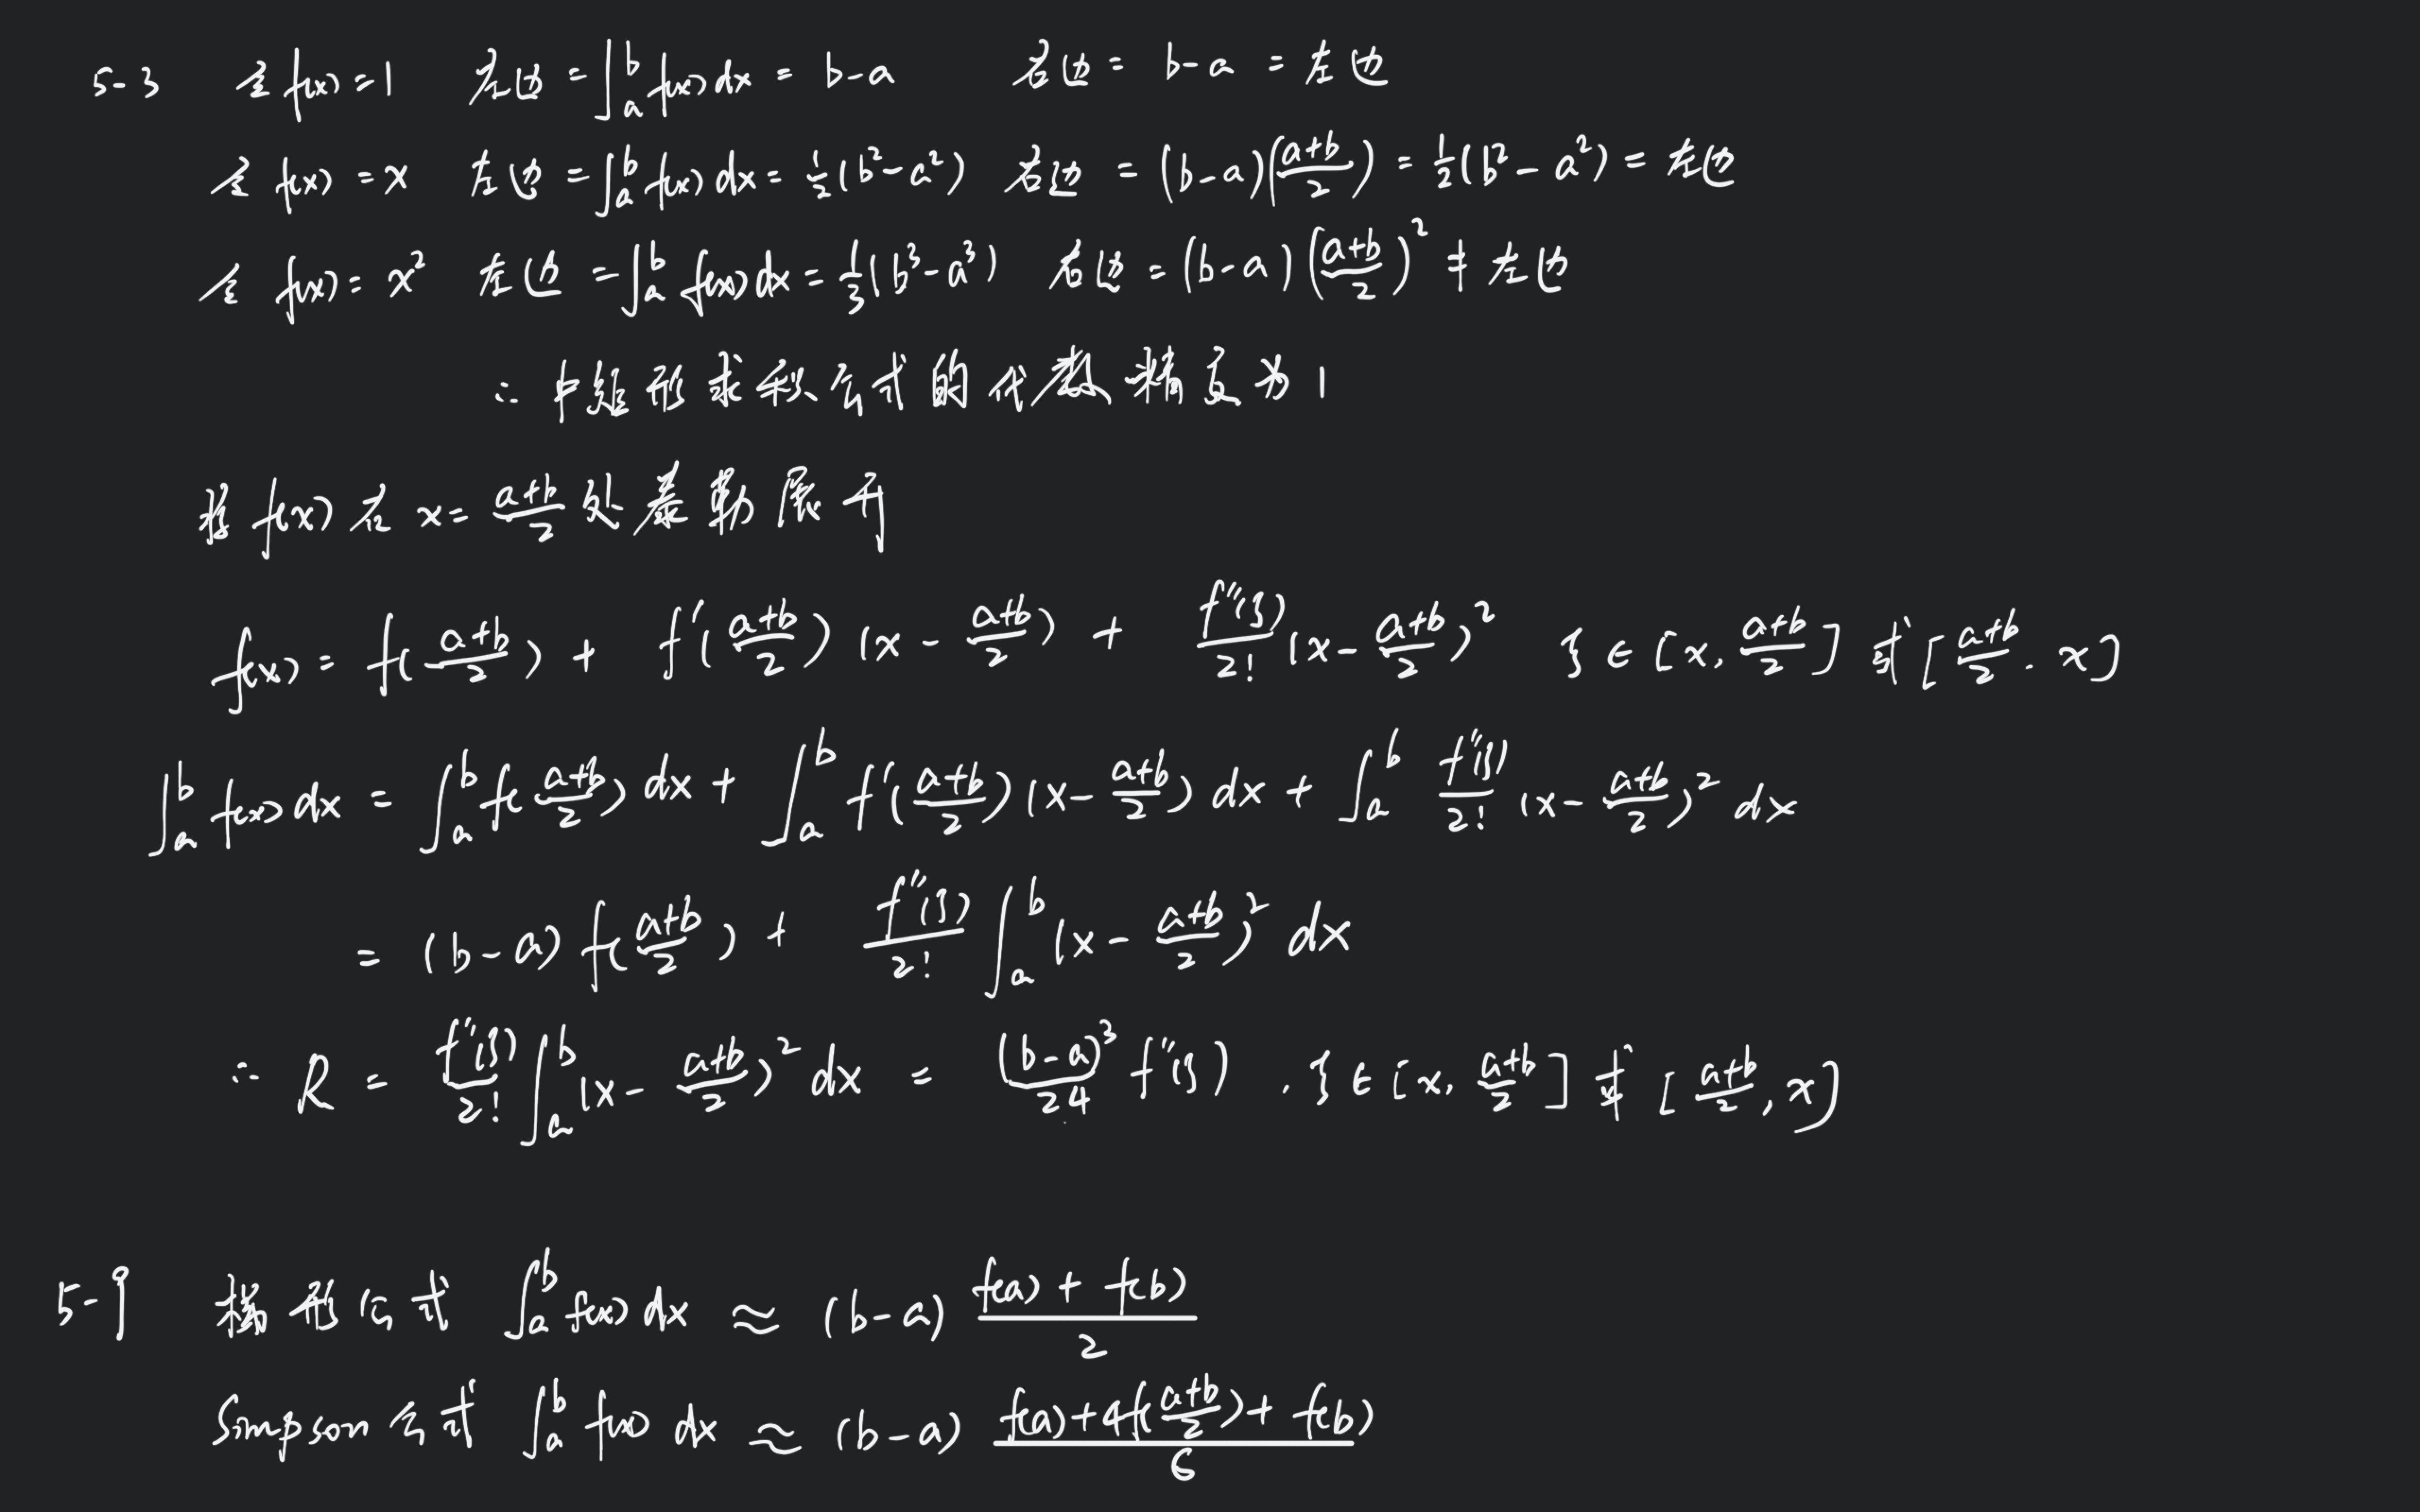 5-3 令 f(x)=1 左边 = ∫_a^b f(x)dx = b-a 右边 = b-a = 左边
令 f(x)=x 左边 = ∫_a^b f(x)dx = 1/2(b²-a²) 右边 = (b-a)((a+b)/2) = 1/2(b²-a²) = 左边
令 f(x)=x² 左边 = ∫_a^b f(x)dx = 1/3(b³-a³) 右边 = (b-a)((a+b)/2)² ≠ 左边
∴ 中矩形求积公式的代数精度为1
将 f(x) 在 x=(a+b)/2 处泰勒展开
f(x) = f((a+b)/2) + f'((a+b)/2)(x-(a+b)/2) + f''(ξ)/2! (x-(a+b)/2)² ξ∈[x, (a+b)/2] 或 [(a+b)/2, x]
∫_a^b f(x)dx = ∫_a^b f((a+b)/2)dx + ∫_a^b f'((a+b)/2)(x-(a+b)/2)dx + ∫_a^b f''(ξ)/2! (x-(a+b)/2)² dx
= (b-a)f((a+b)/2) + f''(ξ)/2! ∫_a^b (x-(a+b)/2)² dx
∴ R = f''(ξ)/2! ∫_a^b (x-(a+b)/2)² dx = (b-a)³/24 f''(ξ), ξ∈[x, (a+b)/2] 或 [(a+b)/2, x]
5-9 梯形公式 ∫_a^b f(x)dx ≈ (b-a) (f(a)+f(b))/2
Simpson公式 ∫_a^b f(x)dx ≈ (b-a) (f(a)+4f((a+b)/2)+f(b))/6